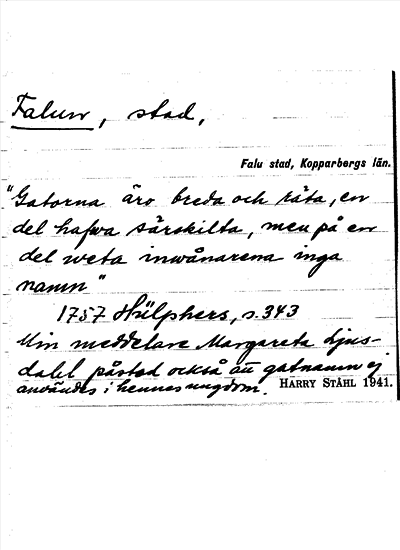 Falun, stad,
Falu stad, Kopparbergs län.
"Gatorna äro breda och räta, en
del hafwa särskilta, men på en
del weta inwånarena inga
namn"
1757 Hülphers, s. 343
Min meddelare Margareta Ljus-
dahl påstod också att gatnamn ej
användes i hennes ungdom. HARRY STÅHL 1941.